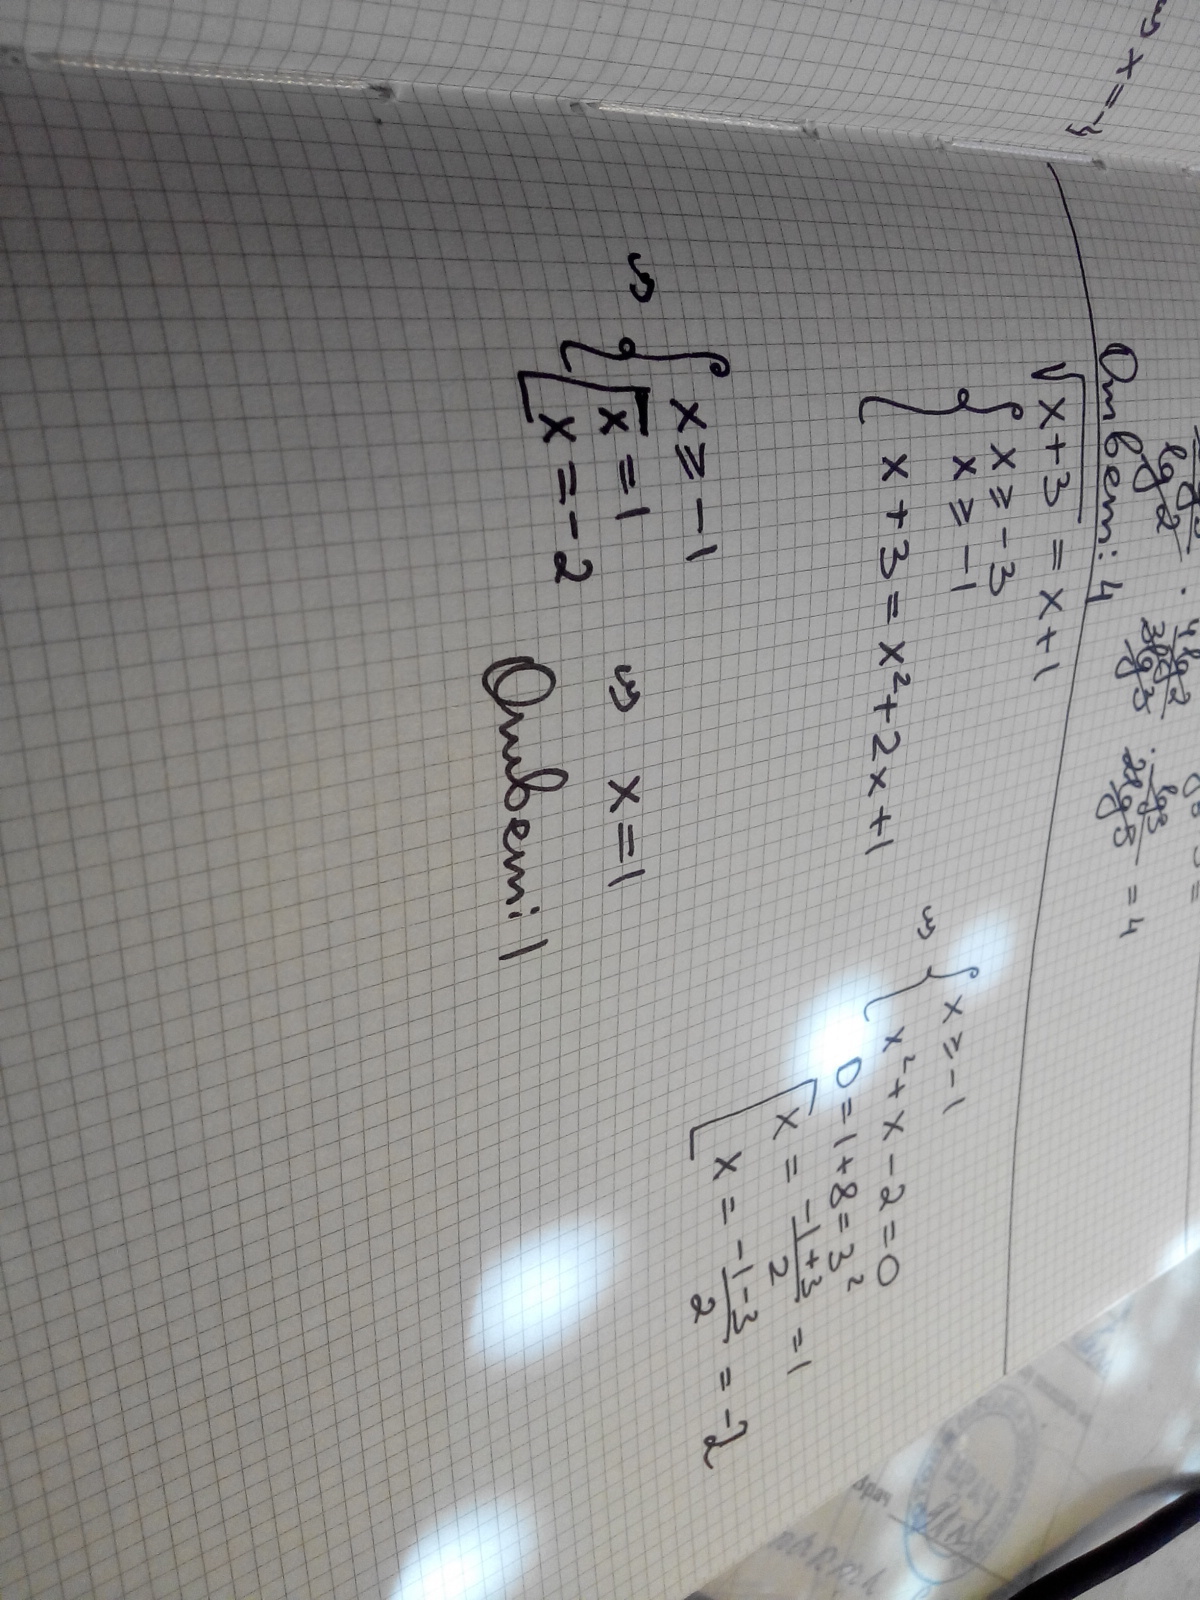 ⇔ x = -4
lg 2
= 4
Ответ: 4
√x+3 = x+1
{ x ≥ -3
x ≥ -1
x+3 = x²+2x+1
⇔ { x ≥ -1
x²+x-2=0
D=1+8=3²
[ x = (-1+3)/2 = 1
x = (-1-3)/2 = -2
⇔ { x ≥ -1
[ x = 1
x = -2
⇔ x = 1
Ответ: 1
Врач
ВРАЧ